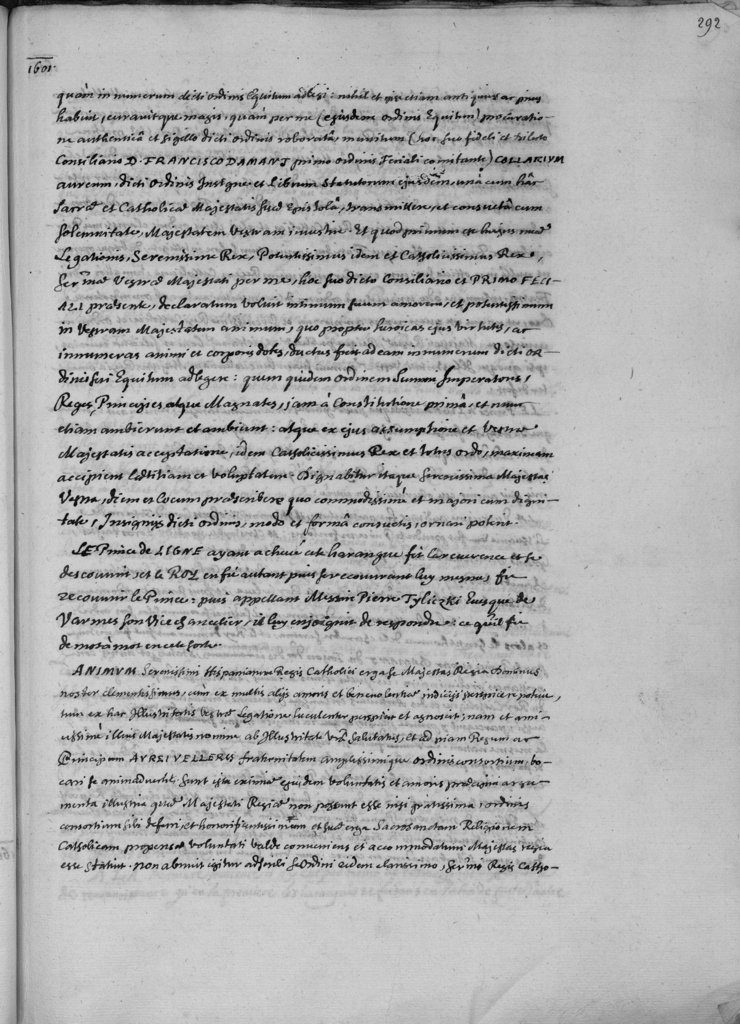 292
1601.
quàm in numerum dicti ordinis Equitum adlegi: nihil et etiam antiquius ac prius
habuit, curavitque magis, quàm per me (ejusdem ordinis Equitem) procuratio-
ne authenticâ et sigello dicti ordinis roboratâ, munitum (hoc suo fideli et dilecto
Consiliario D. FRANCISCO DAMANT primo ordinis Feciali comitante) COLLARIUM
aureum, dicti Ordinis Insigne et Librum Statutorum ejusdem, unâ cum hâc
Sacræ et Catholicæ Majestatis suæ Epistolâ, transmittere, et consuetâ cum
solemnitate, Majestatem Vestram investire. Et quod primum est hujus meæ
Legationis, Serenissime Rex, Potentissimus idem et Catholicissimus Rex,
Ser.mæ Vestræ Majestati per me, hoc suo dicto Consiliario et PRIMO FECI-
ALI præsente, declaratum voluit intimum suum amorem, et potentissimum
in Vestram Majestatem animum, quo propter heroicas ejus virtutes, ac
innumeras animi et corporis dotes, ductus fuit ad eam in numerum dicti or-
dinis sui Equitum adlegere: quem quidem ordinem Summi Imperatores,
Reges, Principes atque Magnates, jam à Constitutione primâ, et nunc
etiam ambierunt et ambiunt: atque ex ejus assumptione et Vestræ
Majestatis acceptatione, idem Catholicissimus Rex et totus ordo, maximam
accipient Lætitiam et voluptatem. Dignabitur itaque Serenissima Majestas
Vestra, diem et Locum præscribere quo commodissimè et majori cum digni-
tate, Insignijs dicti ordinis, modo et formâ consuetis, ornari potest.
LE Prince de LIGNE ayant achevé cete harangue fit la reverence et se
descouvrit, et le ROY en fit autant puis se recouvrant luy mesme, fit
recouvrir le Prince: puis appellant Messire Pierre Tyliczki Evesque de
Varmes son Vice chancelier, il luy enjoignit de respondre: ce qu'il fit
de mot à mot en cete sorte.
ANIMUM Serenissimi Hispaniarum Regis Catholici erga se Majestas Regia Dominus
noster clementissimus, cùm ex multis alijs amoris et benevolentiæ indicijs perspicere potuit,
tum ex hac Illustritatis vestræ Legatione luculenter perspicit et agnoscit; nam et ami-
cissimè illius Majestatis nomine ab Illustritate vrâ salutatus, et ad piam Regum ac
Principum AUREI VELLERIS fraternitatem amplissimique ordinis consortium, vo-
cari se animadvertit. Sunt ista eximiæ ejusdem voluntatis et amoris præcipua argu-
menta illustria quæ Majestati Regiæ non possunt esse nisi gratissima; ordinis
consortium sibi deferri, et honorificentissimum et suæ erga Sacrosanctam Religionem
Catholicam propensæ voluntati valde conveniens et accommodatum Majestas regia
esse statuit. Non abnuit igitur adscribi se Ordini eidem clarissimo, Ser.mo Regis Catho-